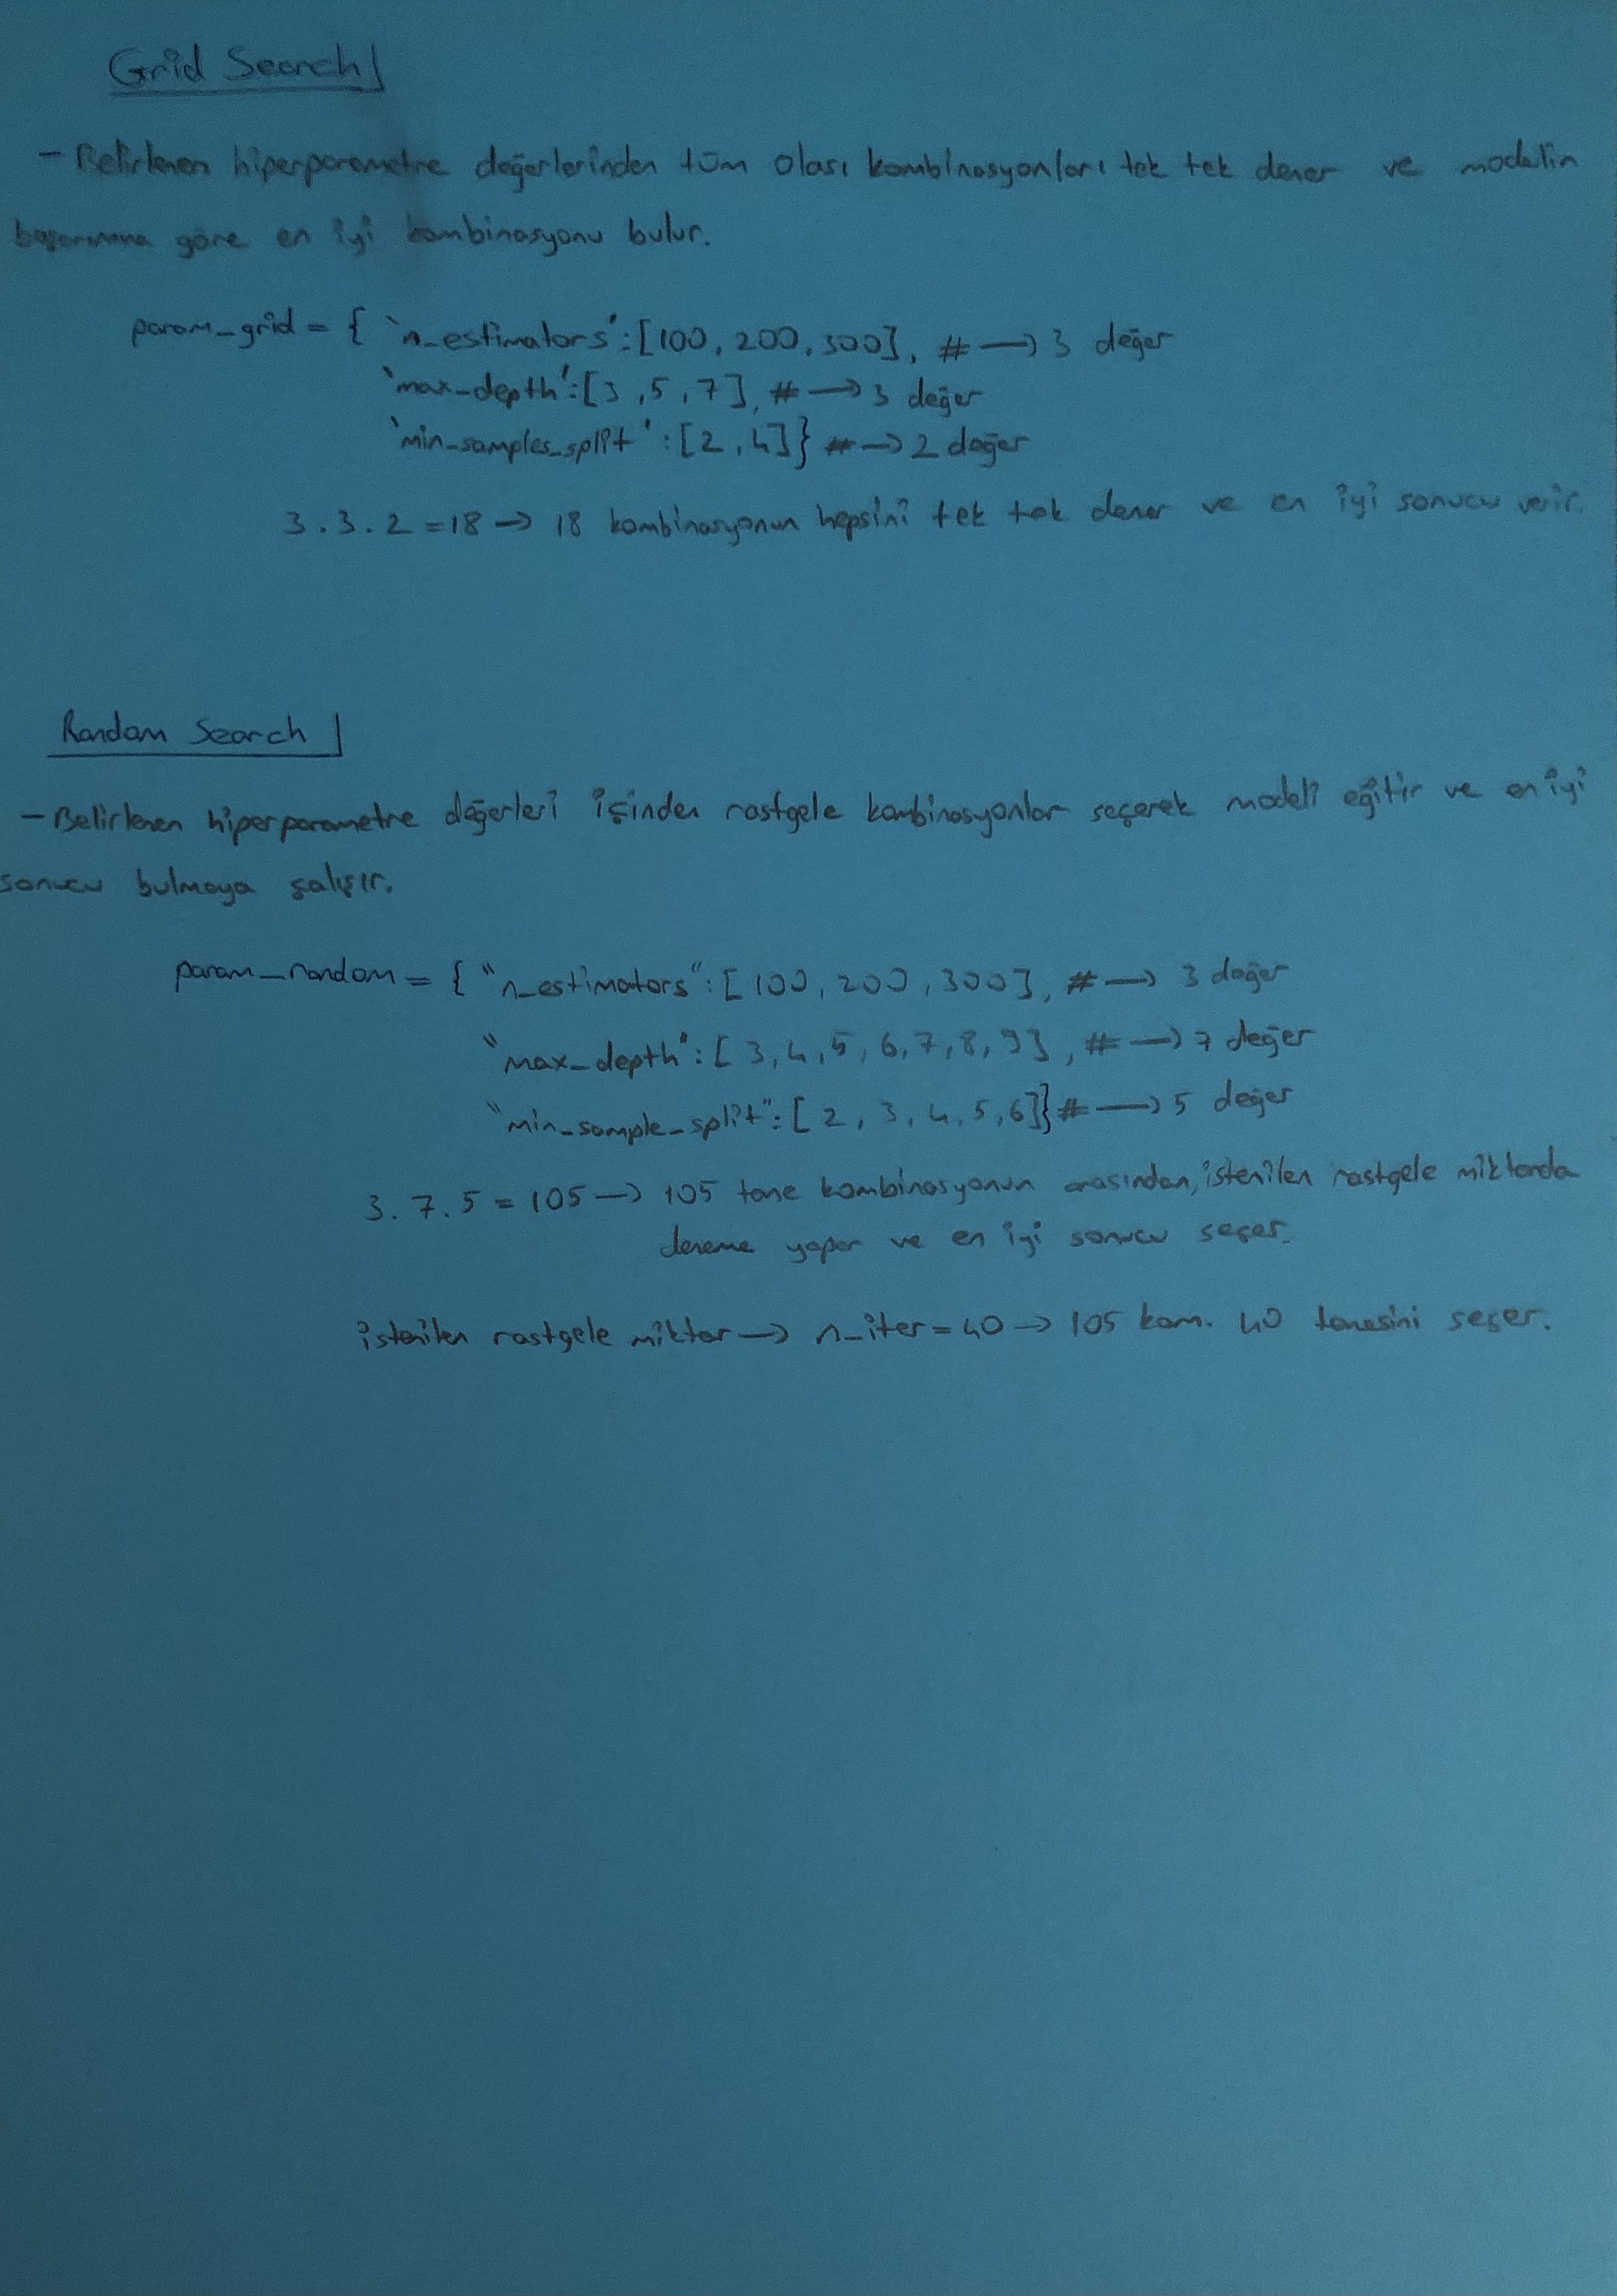 Grid Search
- Belirlenen hiperparametre değerlerinden tüm olası kombinasyonları tek tek dener ve modelin
başarımına göre en iyi kombinasyonu bulur.
param_grid = { 'n_estimators':[100, 200, 300], # → 3 değer
'max_depth':[3, 5, 7], # → 3 değer
'min_samples_split':[2, 4]} # → 2 değer
3.3.2 = 18 → 18 kombinasyonun hepsini tek tek dener ve en iyi sonucu verir.
Random Search
- Belirlenen hiperparametre değerleri içinden rastgele kombinasyonlar seçerek modeli eğitir ve en iyi
sonucu bulmaya çalışır.
param_random = { "n_estimators":[100, 200, 300], # → 3 değer
"max_depth":[3, 4, 5, 6, 7, 8, 9], # → 7 değer
"min_sample_split":[2, 3, 4, 5, 6]} # → 5 değer
3.7.5 = 105 → 105 tane kombinasyonun arasından, istenilen rastgele miktarda
deneme yapar ve en iyi sonucu seçer.
istenilen rastgele miktar → n_iter = 40 → 105 kom. 40 tanesini seçer.